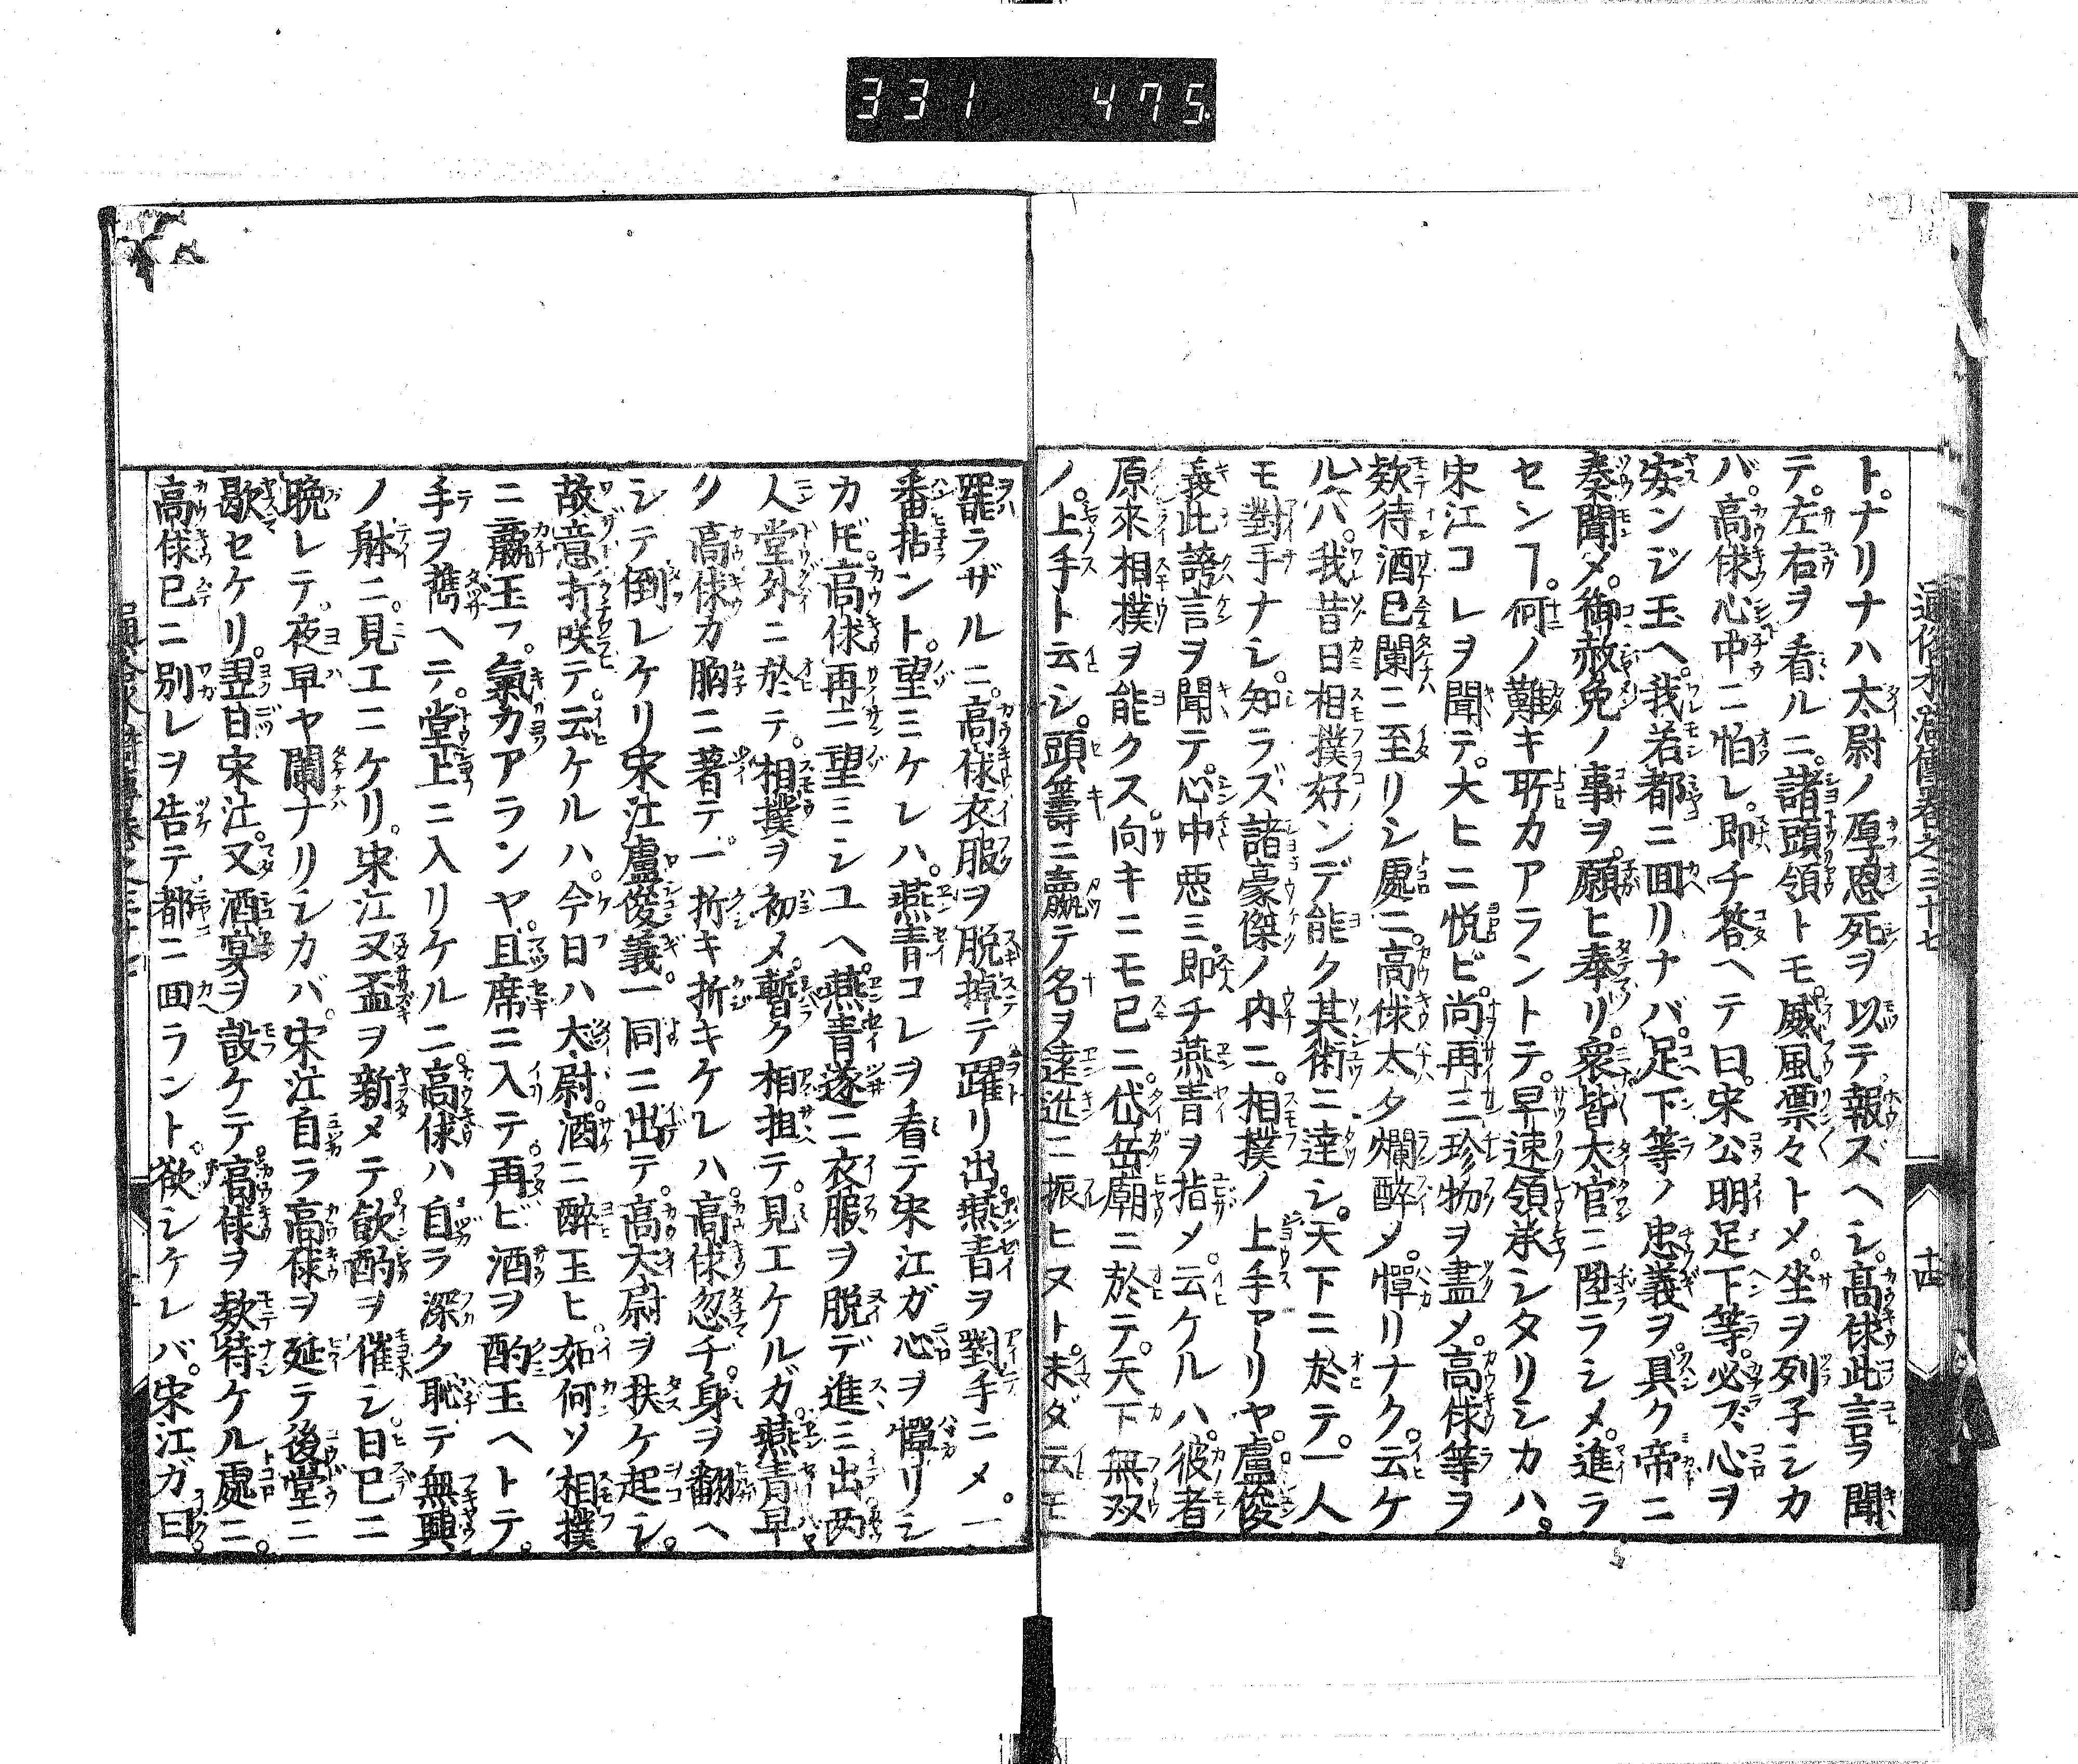 331 475
通俗水滸傳卷之三十七
十四
ト。ナリナハ太尉ノ厚恩死ヲ以テ報ズヘシ。高俅此言ヲ聞
テ。左右ヲ看ルニ。諸頭領トモ。威風凛々トメ。坐ヲ列子シカ
バ。高俅心中ニ怕レ。即チ答ヘテ曰。宋公明足下等。必ズ心ヲ
安ンジ玉ヘ。我若都ニ囬リナバ。足下等ノ忠義ヲ。具ク帝ニ
奏聞メ。御赦免ノ事ヲ。願ヒ奉リ。衆皆大官ニ陞ラシメ。進ラ
センヿ。何ノ難キ所カアラントテ。早速領承シタリシカハ。
宋江コレヲ聞テ。大ヒニ悦ビ。尚再三珍物ヲ盡メ。高俅等ヲ
欵待酒已闌ニ至リシ處ニ。高俅太タ爛醉メ。憚リナク。云ケ
ルハ。我昔日相撲好ンデ能ク其術ニ達シ。天下ニ於テ。一人
モ對手ナシ。知ラズ諸豪傑ノ内ニ。相撲ノ上手アリヤ。盧俊
義此誇言ヲ聞テ。心中悪三即チ燕青ヲ指メ。云ケルハ。彼者
原來相撲ヲ能クス。向キニモ已ニ。岱岳廟ニ於テ。天下無双
ノ。上手ト云シ。頭籌ニ贏テ名ヲ遠近ニ振ヒヌト。未ダ云モ
罷ラザルニ。高俅衣服ヲ脱掉テ躍リ出。燕青ヲ對手ニメ。一
番拈ント。望ミケレハ。燕青コレヲ看テ宋江ガ心ヲ憚リシ
カ𪜈。高俅再三望ミシユヘ。燕青遂ニ衣服ヲ脱デ進ミ出两
人堂外ニ於テ。相撲ヲ初メ。暫ク相扭テ。見エケルガ。燕青早
ク高俅カ胸ニ著テ。一折キ折キケレハ。高俅忽チ。身ヲ翻ヘ
シテ倒レケリ宋江盧俊義。一同ニ出テ。高太尉ヲ扶ケ起シ。
故意打咲テ。云ケルハ。今日ハ太尉酒ニ醉玉ヒ。如何ソ相撲
ニ贏玉フ。氣力アランヤ。且席ニ入テ。再ビ酒ヲ酌玉ヘトテ。
手ヲ携ヘテ。堂上ニ入リケルニ。高俅ハ自ラ深ク恥テ無興
ノ躰ニ。見エニケリ。宋江又盃ヲ新メテ。飲酌ヲ催シ。日已ニ
晩レテ。夜早ヤ闌ナリシカバ。宋江自ラ高俅ヲ延テ後堂ニ
歇セケリ。翌日宋江。又酒宴ヲ設ケテ。高俅ヲ欵待ケル處ニ。
高俅已ニ別レヲ告テ都ニ囬ラント。欲シケレバ。宋江ガ曰。